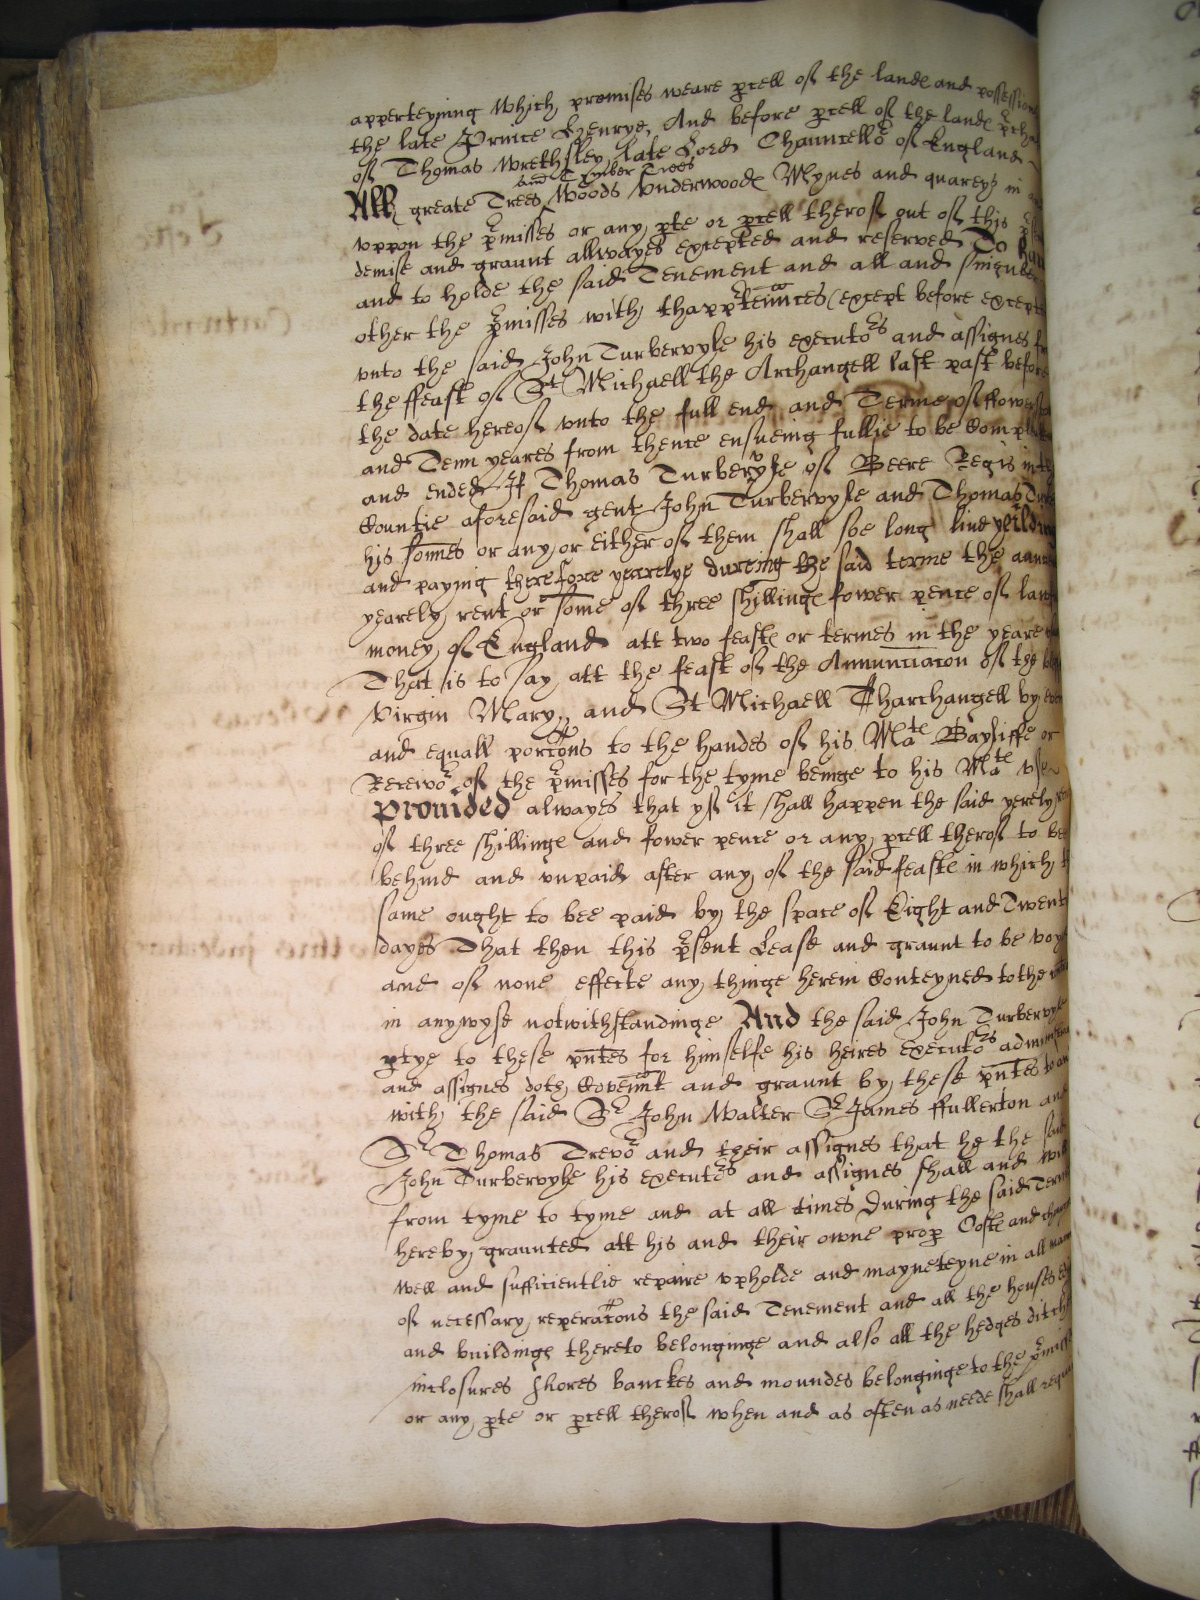 apperteyning which premises weare pcell of the landes and possession
the late Prince Henrye, And before pcell of the landes pcha
of Thomas Wrethsley late Lord Chauncello&#x36F; of England
and Tymber Trees
All greate Trees Woods Underwoodes Mynes and quareys in
vppon the pmisses or any pte or pcell therof out of this
demise and graunt allwayes excepted and reserved To hau
and to holde the said Tenement and all and singuler
other the pmisses with thapptennces (except before except
vnto the said John Turbervyle his executors and assignes
the ffeast of St Michaell the Archangell last past before
the date hereof vnto the full end and Terme of ffower
and Tenn yeares from thence ensueing fullie to be Compl
and ended If Thomas Turbervyle of Beere Regis in
Countie aforesaid gent John Turbervyle and Thomas Tur
his sonnes or any or either of them shall soe long liue yeildin
and paying therefore yearelye dureing the said terme the
yearely rent or some of three shillinges fower pence of law
money of England att two feastes or termes in the yeare
That is to say att the feast of the Annunciacon of the
Virgin Mary, and St Michaell Tharchangell by
and equall porcons to the handes of his Mate Bayliffe or
Recevor of the pmisses for the tyme beinge to his Mate vse
Prouided alwayes that yf it shall happen the said yerely
of three shillinges and fower pence or any pcell therof to be
behind and vnpaid after any of the said feastes in which
same ought to bee paid by the space of Eight and Twent
dayes That then this psent Lease and graunt to be voy
and of none effecte any thinge herein Conteyned to the
in anywyse notwithstandinge And the said John Turbervyle
ptye to these pntes for himselfe his heires executors adminis
and assignes doth Covennt and graunt by these pntes to an
with the said Sr John Walter Sr James ffullerton and
Sr Thomas Trevor and their assignes that he the said
John Turbervyle his executors and assignes shall and will
from tyme to tyme and at all times During the said Term
hereby graunted att his and their owne prop Costes and char
well and sufficientlie repaire vpholde and mayneteyne in all man
of necessary reperacons the said Tenement and all the houses
and buildinges thereto belonginge and also all the hedges ditch
inclosures shores banckes and moundes belonginge to the pmiss
or any pte or pcell therof when and as often as neede shall requ